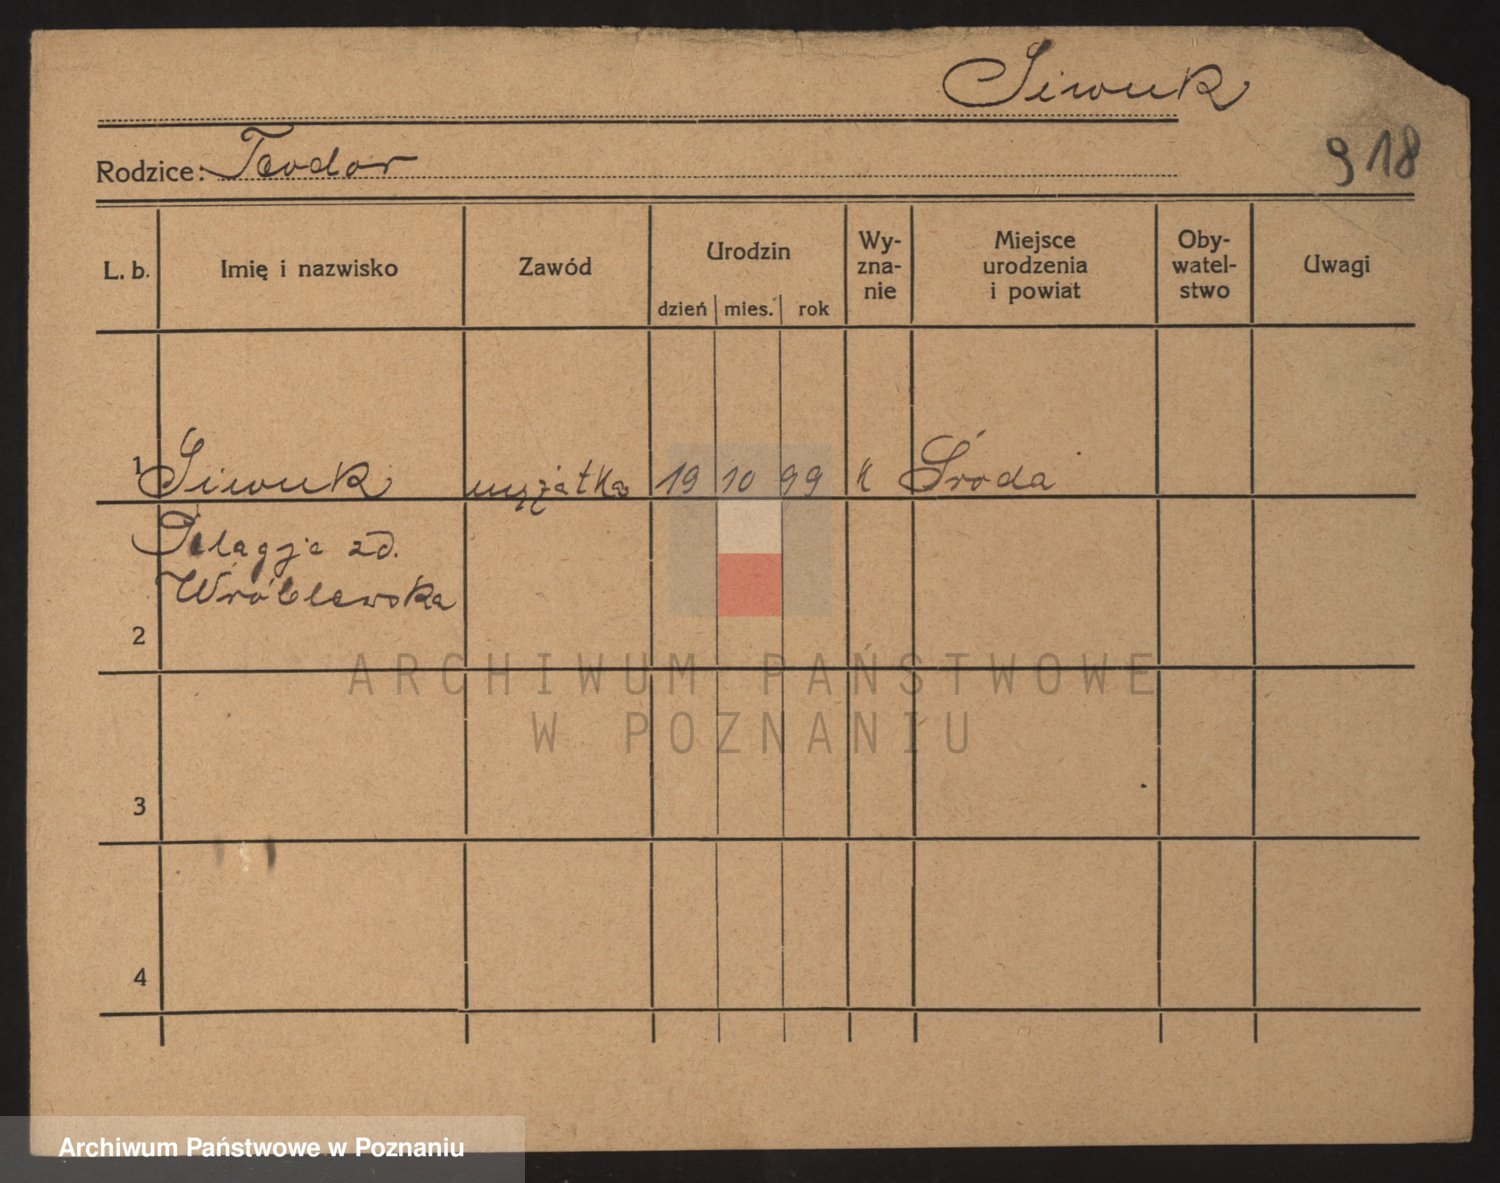 Siwuk
Rodzice: Teodor
918
L. b. Imię i nazwisko Zawód Urodzin dzień mies. rok Wy-zna-nie Miejsce urodzenia i powiat Oby-watel-stwo Uwagi
1 Siwuk mężatka 19 10 99 k Środa
Pelagja zd.
Wróblewska
2
3
4
ARCHIWUM PAŃSTWOWE
W POZNANIU
Archiwum Państwowe w Poznaniu